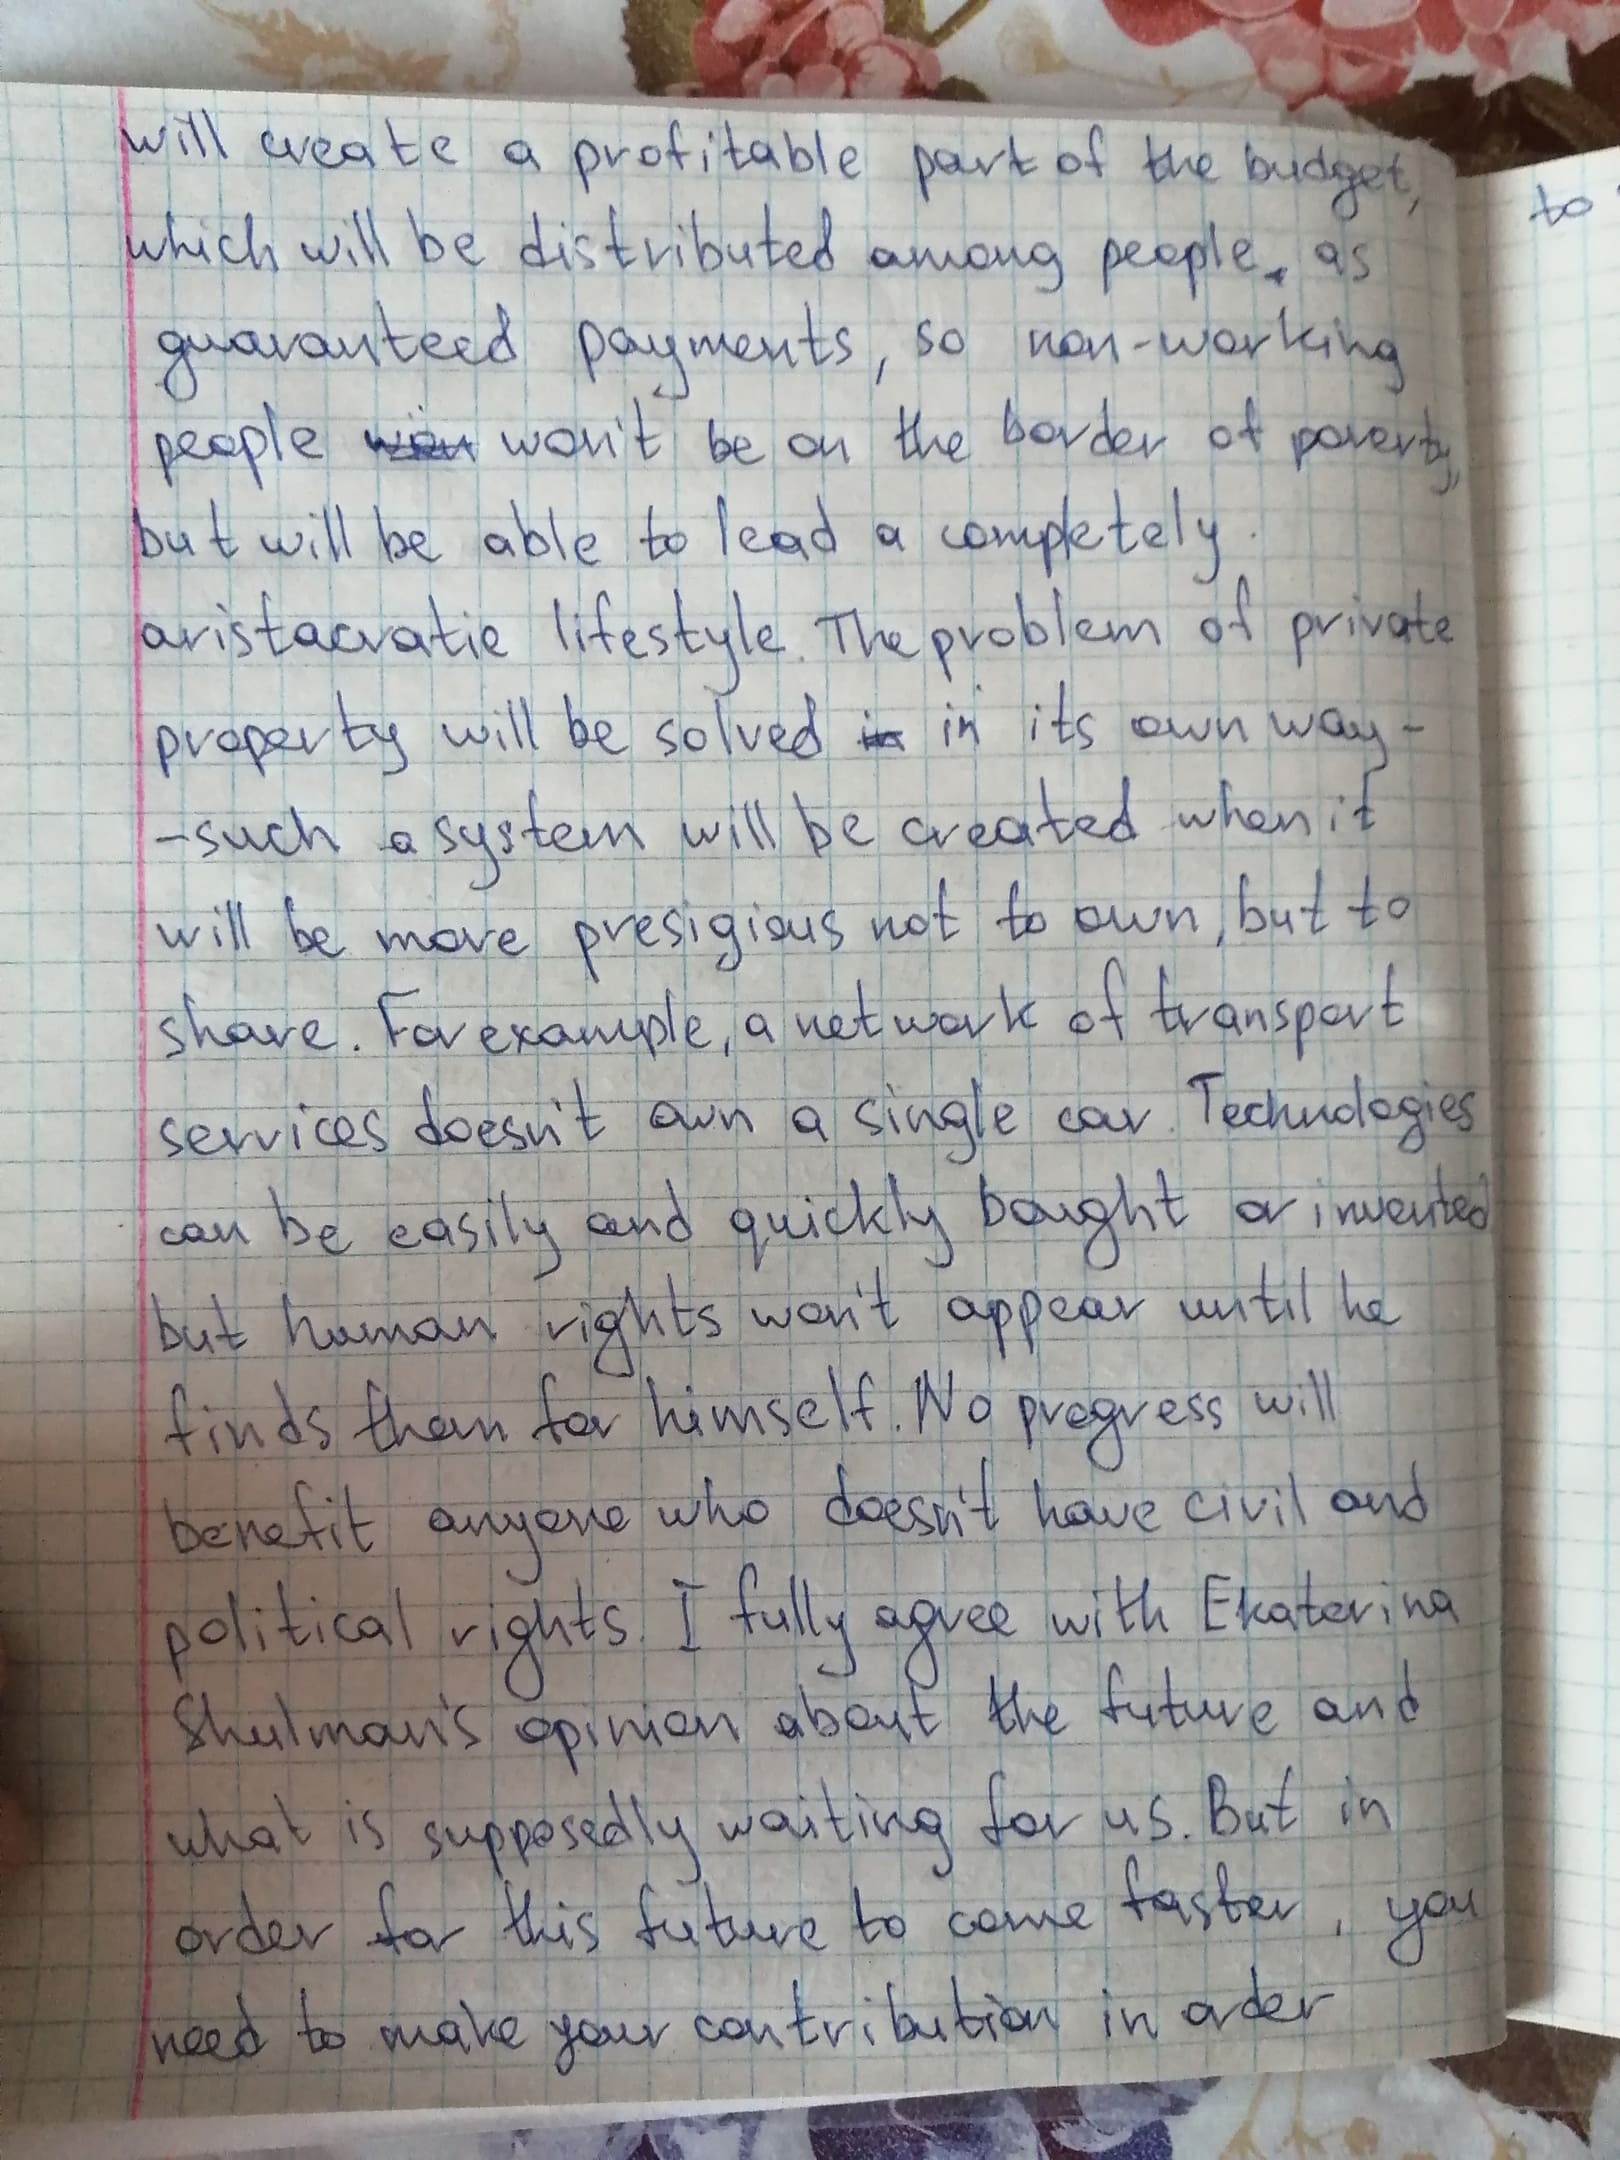 will create a profitable part of the budget,
which will be distributed among people, as
guaranteed payments, so non-working
people won't be on the border of poverty,
but will be able to lead a completely
aristacratic lifestyle. The problem of private
property will be solved in in its own way-
-such a system will be created when it
will be more presigious not to own, but to
share. For example, a network of transport
services doesn't own a single car. Technologies
can be easily and quickly bought or invented
but human rights won't appear until he
finds them for himself. No progress will
benefit anyone who doesn't have civil and
political rights. I fully agree with Ekaterina
Shulman's opinion about the future and
what is supposedly waiting for us. But in
order for this future to come faster, you
need to make your contribution in order
to